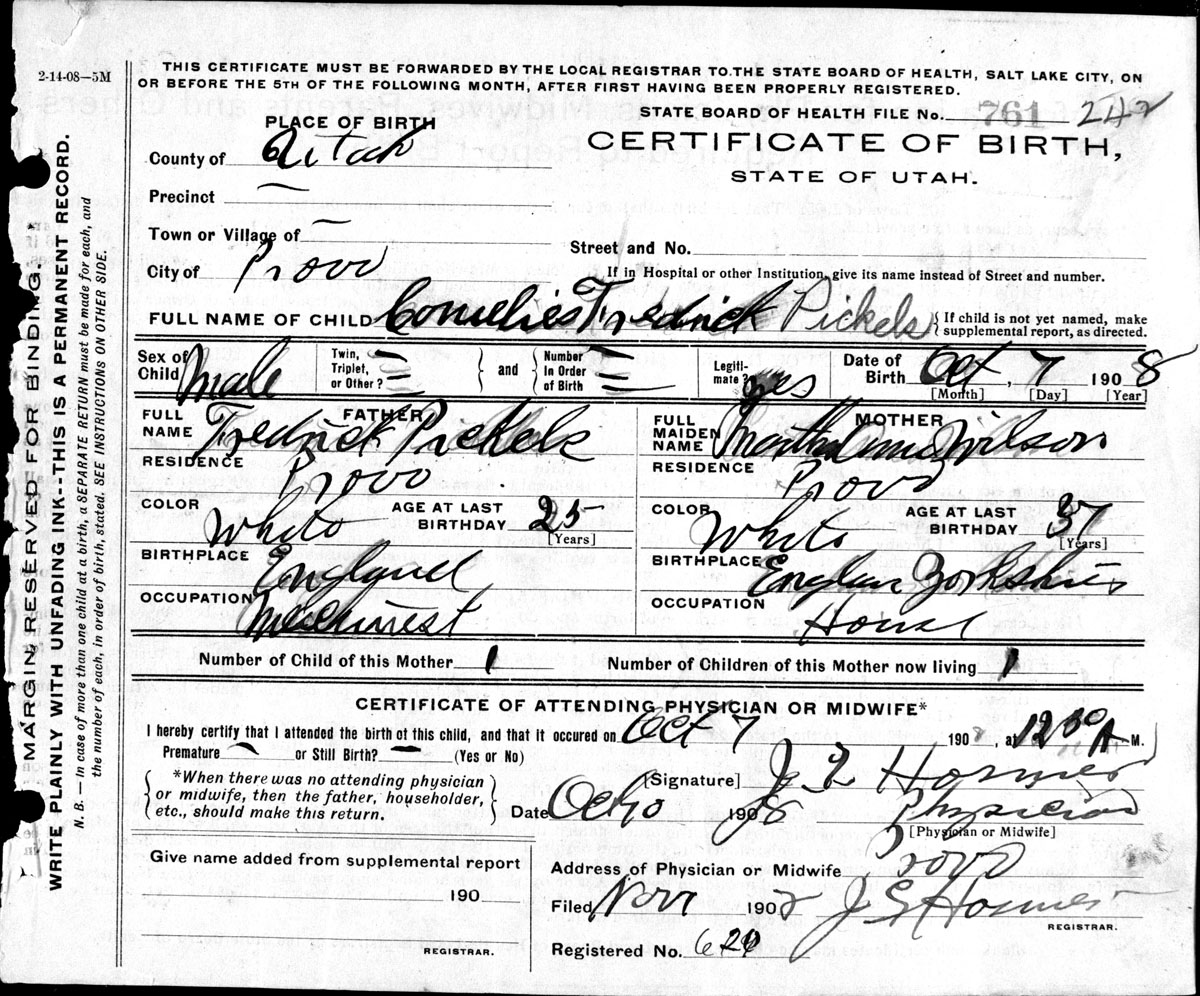 2-14-08—5M
THIS CERTIFICATE MUST BE FORWARDED BY THE LOCAL REGISTRAR TO THE STATE BOARD OF HEALTH, SALT LAKE CITY, ON
OR BEFORE THE 5TH OF THE FOLLOWING MONTH, AFTER FIRST HAVING BEEN PROPERLY REGISTERED.
STATE BOARD OF HEALTH FILE No. 761 242
PLACE OF BIRTH
CERTIFICATE OF BIRTH,
STATE OF UTAH.
County of Utah
Precinct —
Town or Village of —
Street and No.
City of Provo
If in Hospital or other Institution, give its name instead of Street and number.
FULL NAME OF CHILD Cornelies Fredrick Pickels
{If child is not yet named, make
supplemental report, as directed.
Sex of Child Male
Twin, Triplet, or Other?
and
Number In Order of Birth
Legiti-mate? yes
Date of Birth Oct, 7 1908
[Month] [Day] [Year]
FATHER
FULL NAME Fredrick Pickels
MOTHER
FULL MAIDEN NAME Martha Wilson
RESIDENCE Provo
RESIDENCE Provo
COLOR White
AGE AT LAST BIRTHDAY 25
[Years]
COLOR White
AGE AT LAST BIRTHDAY 37
[Years]
BIRTHPLACE England
BIRTHPLACE Yorkshire
OCCUPATION
OCCUPATION House
Number of Child of this Mother 1
Number of Children of this Mother now living 1
CERTIFICATE OF ATTENDING PHYSICIAN OR MIDWIFE*
I hereby certify that I attended the birth of this child, and that it occured on Oct 7 1908, at 12 30 A M.
Premature — or Still Birth? — (Yes or No)
*When there was no attending physician
or midwife, then the father, householder,
etc., should make this return.
[Signature] Hosmer
Date 1908 Physician
[Physician or Midwife]
Give name added from supplemental report
190
REGISTRAR.
Address of Physician or Midwife Provo
Filed Nov 190 Hosmer
REGISTRAR.
Registered No.
MARGIN RESERVED FOR BINDING.
WRITE PLAINLY WITH UNFADING INK--THIS IS A PERMANENT RECORD.
N. B. — In case of more than one child at a birth, a SEPARATE RETURN must be made for each, and
the number of each, in order of birth, stated. SEE INSTRUCTIONS ON OTHER SIDE.